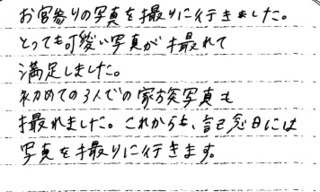 お宮参りの写真を撮りに行きました。
とっても可愛い写真が撮れて
満足しました。
初めての3人での家族写真も
撮れました。これからも、記念日には
写真を撮りに行きます。